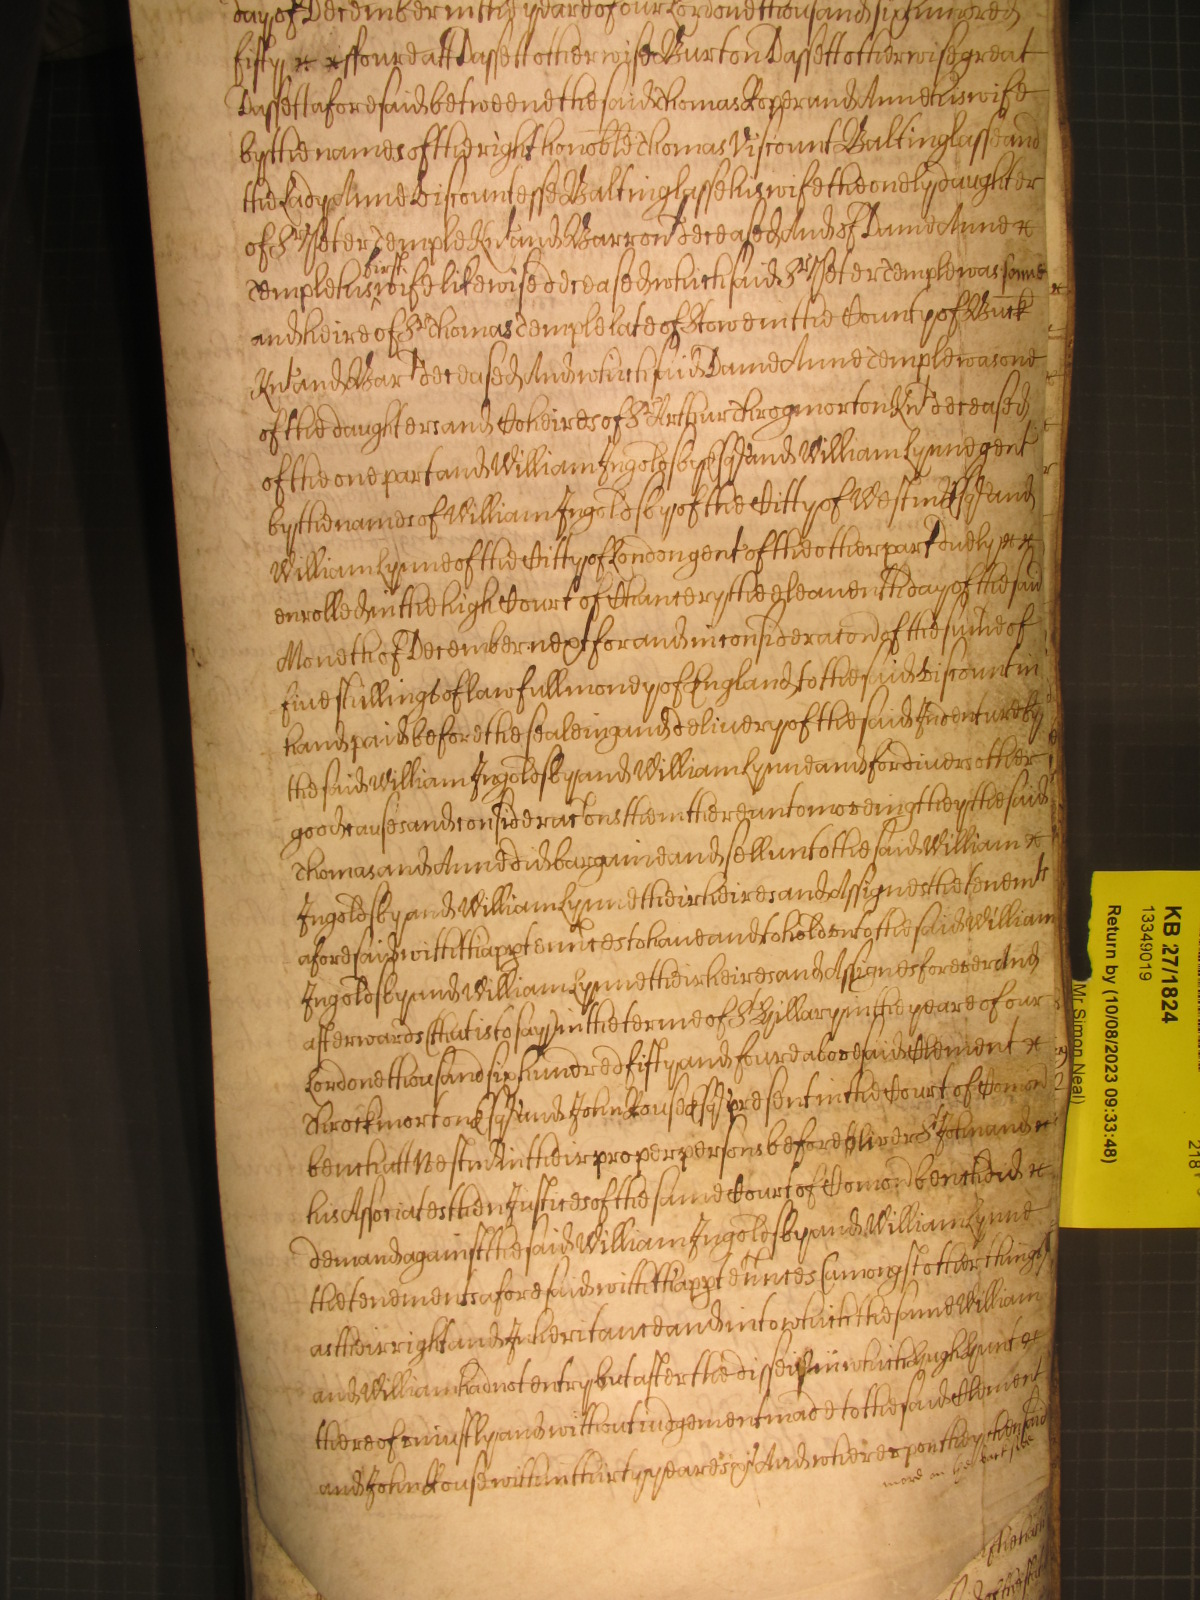 day of December in the yeare of our Lord one thousand six hundred
fifty & ffoure att Dassett otherwise Burton Dassett otherwise great
Dassett aforesaid betweene the said Thomas Roper and Anne his wife
by the names of the right honoble Thomas Viscount Baltinglasse and
the Lady Anne Viscountesse Baltinglasse his wife the onely daughter
of Sr Peter Temple Knt and Barront deceased And of Dame Anne
Temple his first wife likewise deceased which said Sr Peter Temple was sonne
and heire of Sr Thomas Temple late of Stowe in the County of Buck
Knt and Bart deceased And which said Dame Anne Temple was one
of the daughters and Coheires of Sr Arthur Throgmorton Knt deceased
of the one part and William Ingoldsby Esqr and William Lynne gent
by the names of William Ingoldsby of the Citty of Westm Esqr and
William Lynne of the Citty of London gent of the other part duely
enrolled in the high Court of Chancery the eleaventh day of the said
Moneth of December next for and in consideracon of the sume of
five shillings of lawfull money of England to the said Viscount in
hand paid before the sealeing and delivery of the said Indenture by
the said William Ingoldsby and William Lynne and for divers other
good causes and consideracons them thereunto moveing they the said
Thomas and Anne did bargaine and sell unto the said William
Ingoldsby and William Lynne their heires and Assignes the tenemts
aforesaid with thappurtennces to have and to hold to the said William
Ingoldsby and William Lynne their heires and Assignes forever And
afterwards (that is to say) in the terme of St Hillary in the yeare of our
Lord one thousand six hundred fifty and foure abovesaid Clement
Throckmorton Esqr and John Rouse Esqr present in the Court of Comon
bench att Westm in their proper persons before Oliver St John and
his Associates then Justices of the same Court of Comon bench did
demand against the said William Ingoldsby and William Lynne
the tenements aforesaid with thappurtennces (amongst other things)
as their right and Inheritance and into which the same William
and William had not entry but after the disseisin which Hugh Hunt
thereof uniustly and without iudgement made to the said Clement
and John Rouse within thirty yeares &c And whereupon they then said
more on ye back side
KB 27/1824
13349019
Return by (10/08/2023 09:33:48)
Mr Simon Neal)